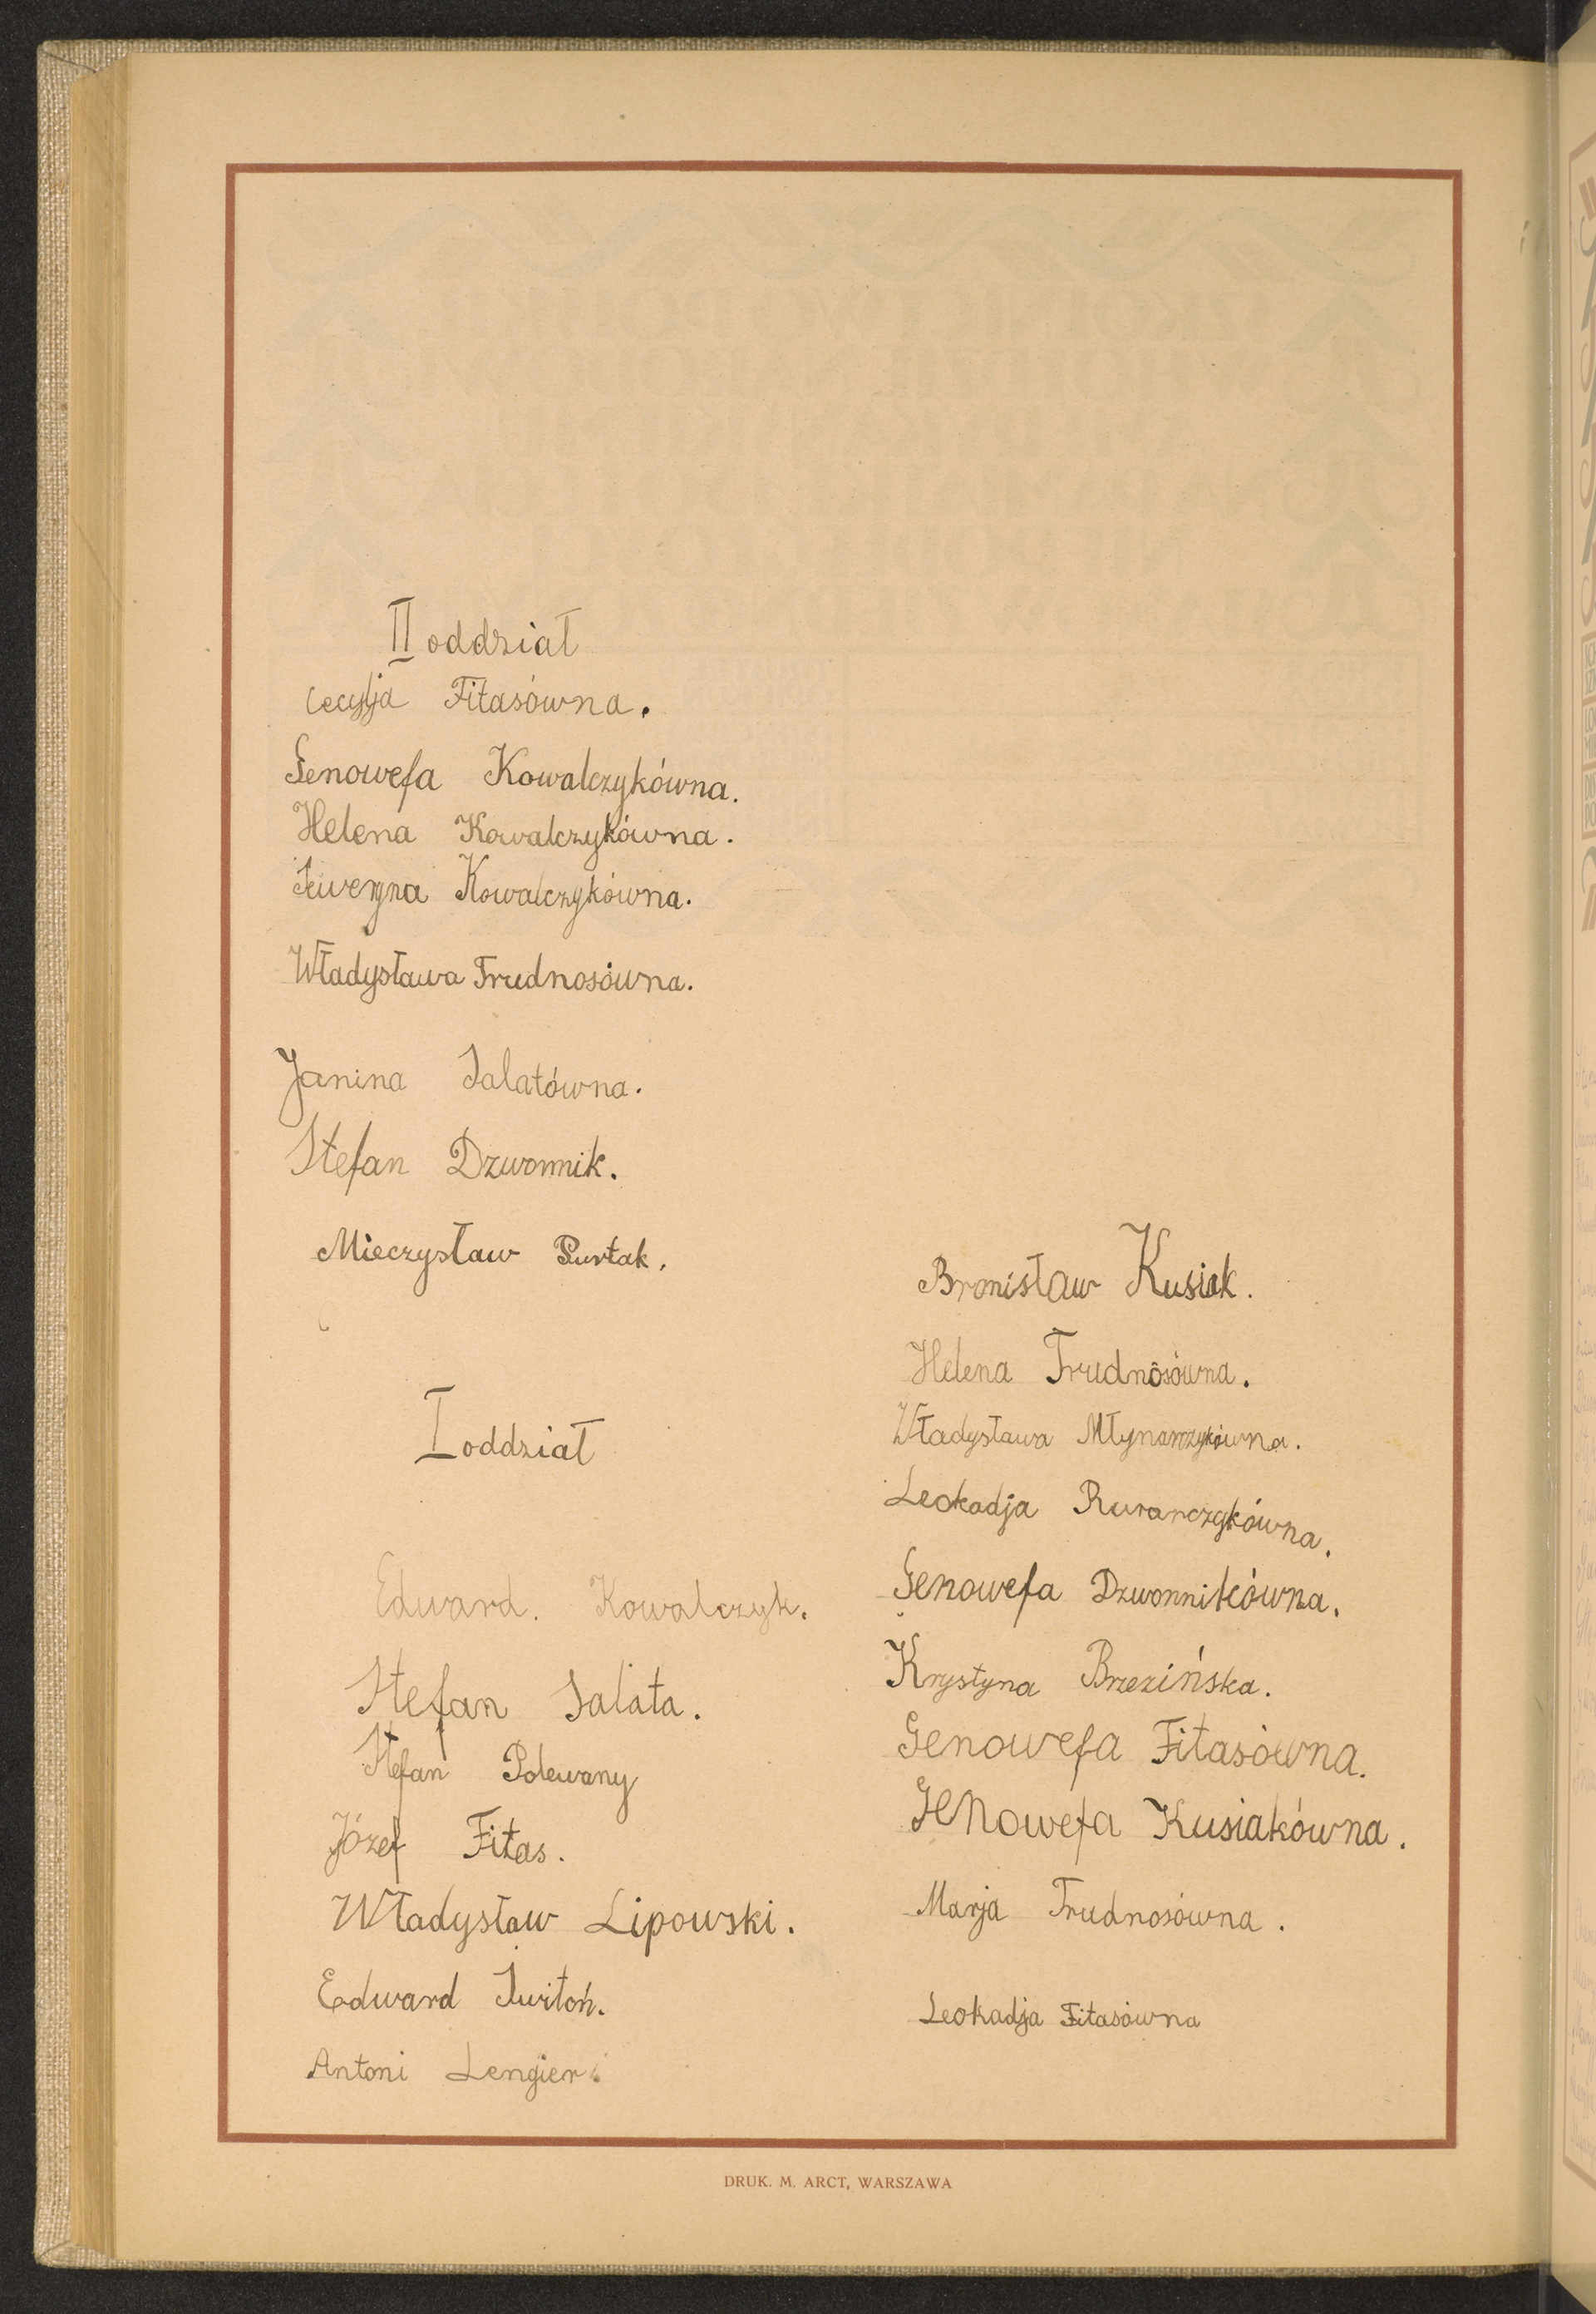 II oddział
Cecylja Fitasówna.
Genowefa Kowalczykówna.
Helena Kowalczykówna.
Kowalczykówna.
Władysława Trudnosówna.
Janina Salatówna.
Stefan Dzwonnik.
Mieczysław Purtak.
I oddział
Edward. Kowalczyk.
Stefan Salata.
Stefan Polewany
Józef Fitas.
Władysław Lipowski.
Edward Switoń.
Antoni Lengier.
Bronisław Kusiak.
Helena Trudnosówna.
Władysława Młynarczykówna.
Leokadja Rurarczykówna.
Genowefa Dzwonnikówna.
Krystyna Brzezińska.
Genowefa Fitasówna.
Genowefa Kusiakówna.
Marja Trudnosówna.
Leokadja Fitasówna
DRUK. M. ARCT, WARSZAWA